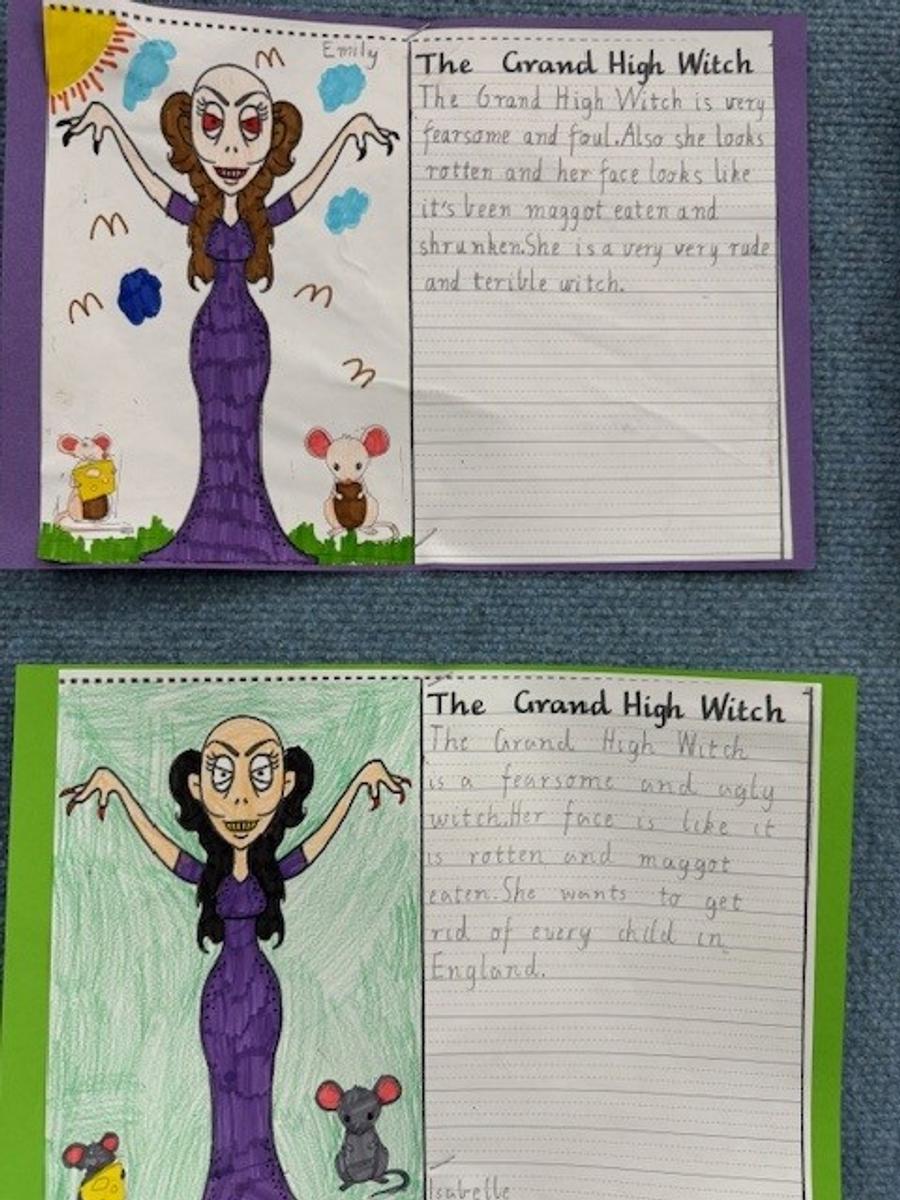 Emily
The Grand High Witch
The Grand High Witch is very
fearsome and foul.Also she looks
rotten and her face looks like
it's been maggot eaten and
shrunken.She is a very very rude
and terible witch.
The Grand High Witch
The Grand High Witch
is a fearsome and ugly
witch.Her face is like it
is rotten and maggot
eaten.She wants to get
rid of every child in
England.
Isabelle